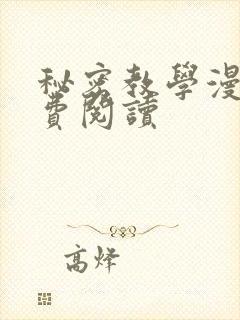 秘密教學漫
費閱讀
高烽